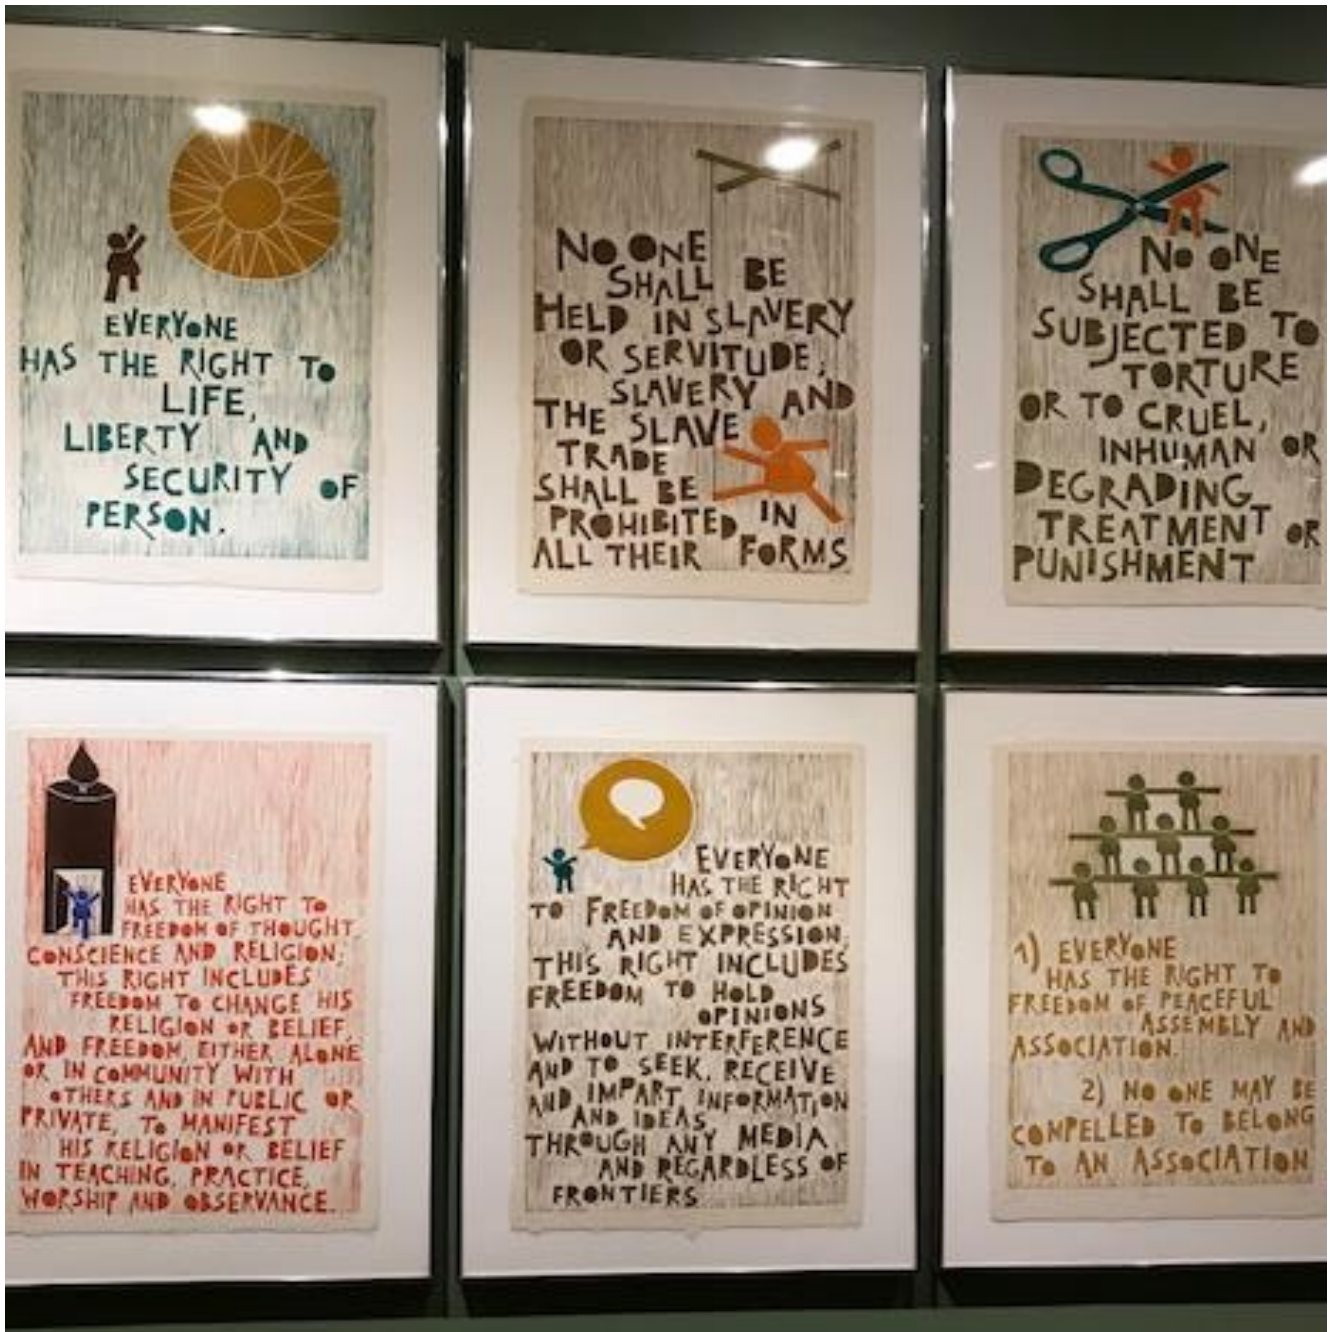 EVERYONE
HAS THE RIGHT TO
LIFE,
LIBERTY AND
SECURITY OF
PERSON.
NO ONE
SHALL BE
HELD IN SLAVERY
OR SERVITUDE;
SLAVERY AND
THE SLAVE
TRADE
SHALL BE
PROHIBITED IN
ALL THEIR FORMS
NO ONE
SHALL BE
SUBJECTED TO
TORTURE
OR TO CRUEL,
INHUMAN OR
DEGRADING
TREATMENT OR
PUNISHMENT
EVERYONE
HAS THE RIGHT TO
FREEDOM OF THOUGHT,
CONSCIENCE AND RELIGION;
THIS RIGHT INCLUDES
FREEDOM TO CHANGE HIS
RELIGION OR BELIEF,
AND FREEDOM, EITHER ALONE
OR IN COMMUNITY WITH
OTHERS AND IN PUBLIC OR
PRIVATE, TO MANIFEST
HIS RELIGION OR BELIEF
IN TEACHING, PRACTICE,
WORSHIP AND OBSERVANCE.
EVERYONE
HAS THE RIGHT
TO FREEDOM OF OPINION
AND EXPRESSION,
THIS RIGHT INCLUDES
FREEDOM TO HOLD
OPINIONS
WITHOUT INTERFERENCE
AND TO SEEK, RECEIVE
AND IMPART INFORMATION
AND IDEAS
THROUGH ANY MEDIA
AND REGARDLESS OF
FRONTIERS
1) EVERYONE
HAS THE RIGHT TO
FREEDOM OF PEACEFUL
ASSEMBLY AND
ASSOCIATION.
2) NO ONE MAY BE
COMPELLED TO BELONG
TO AN ASSOCIATION